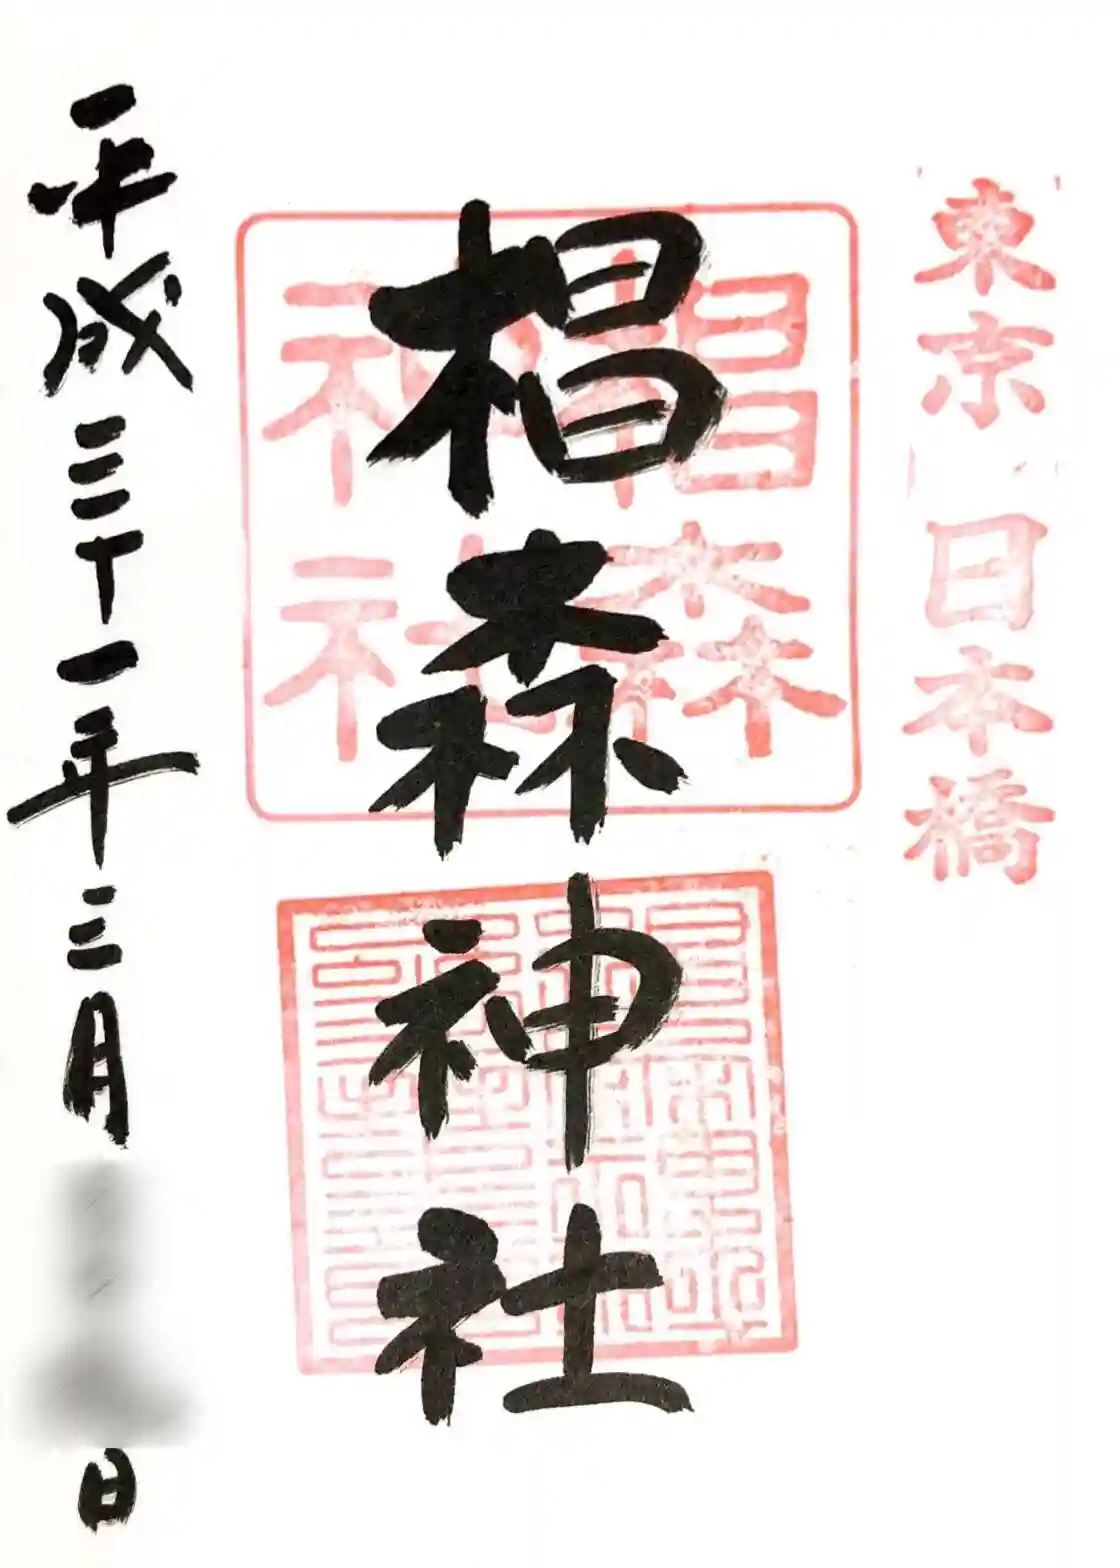 東京 日本橋
椙森神社
椙森神社
平成三十一年三月
日